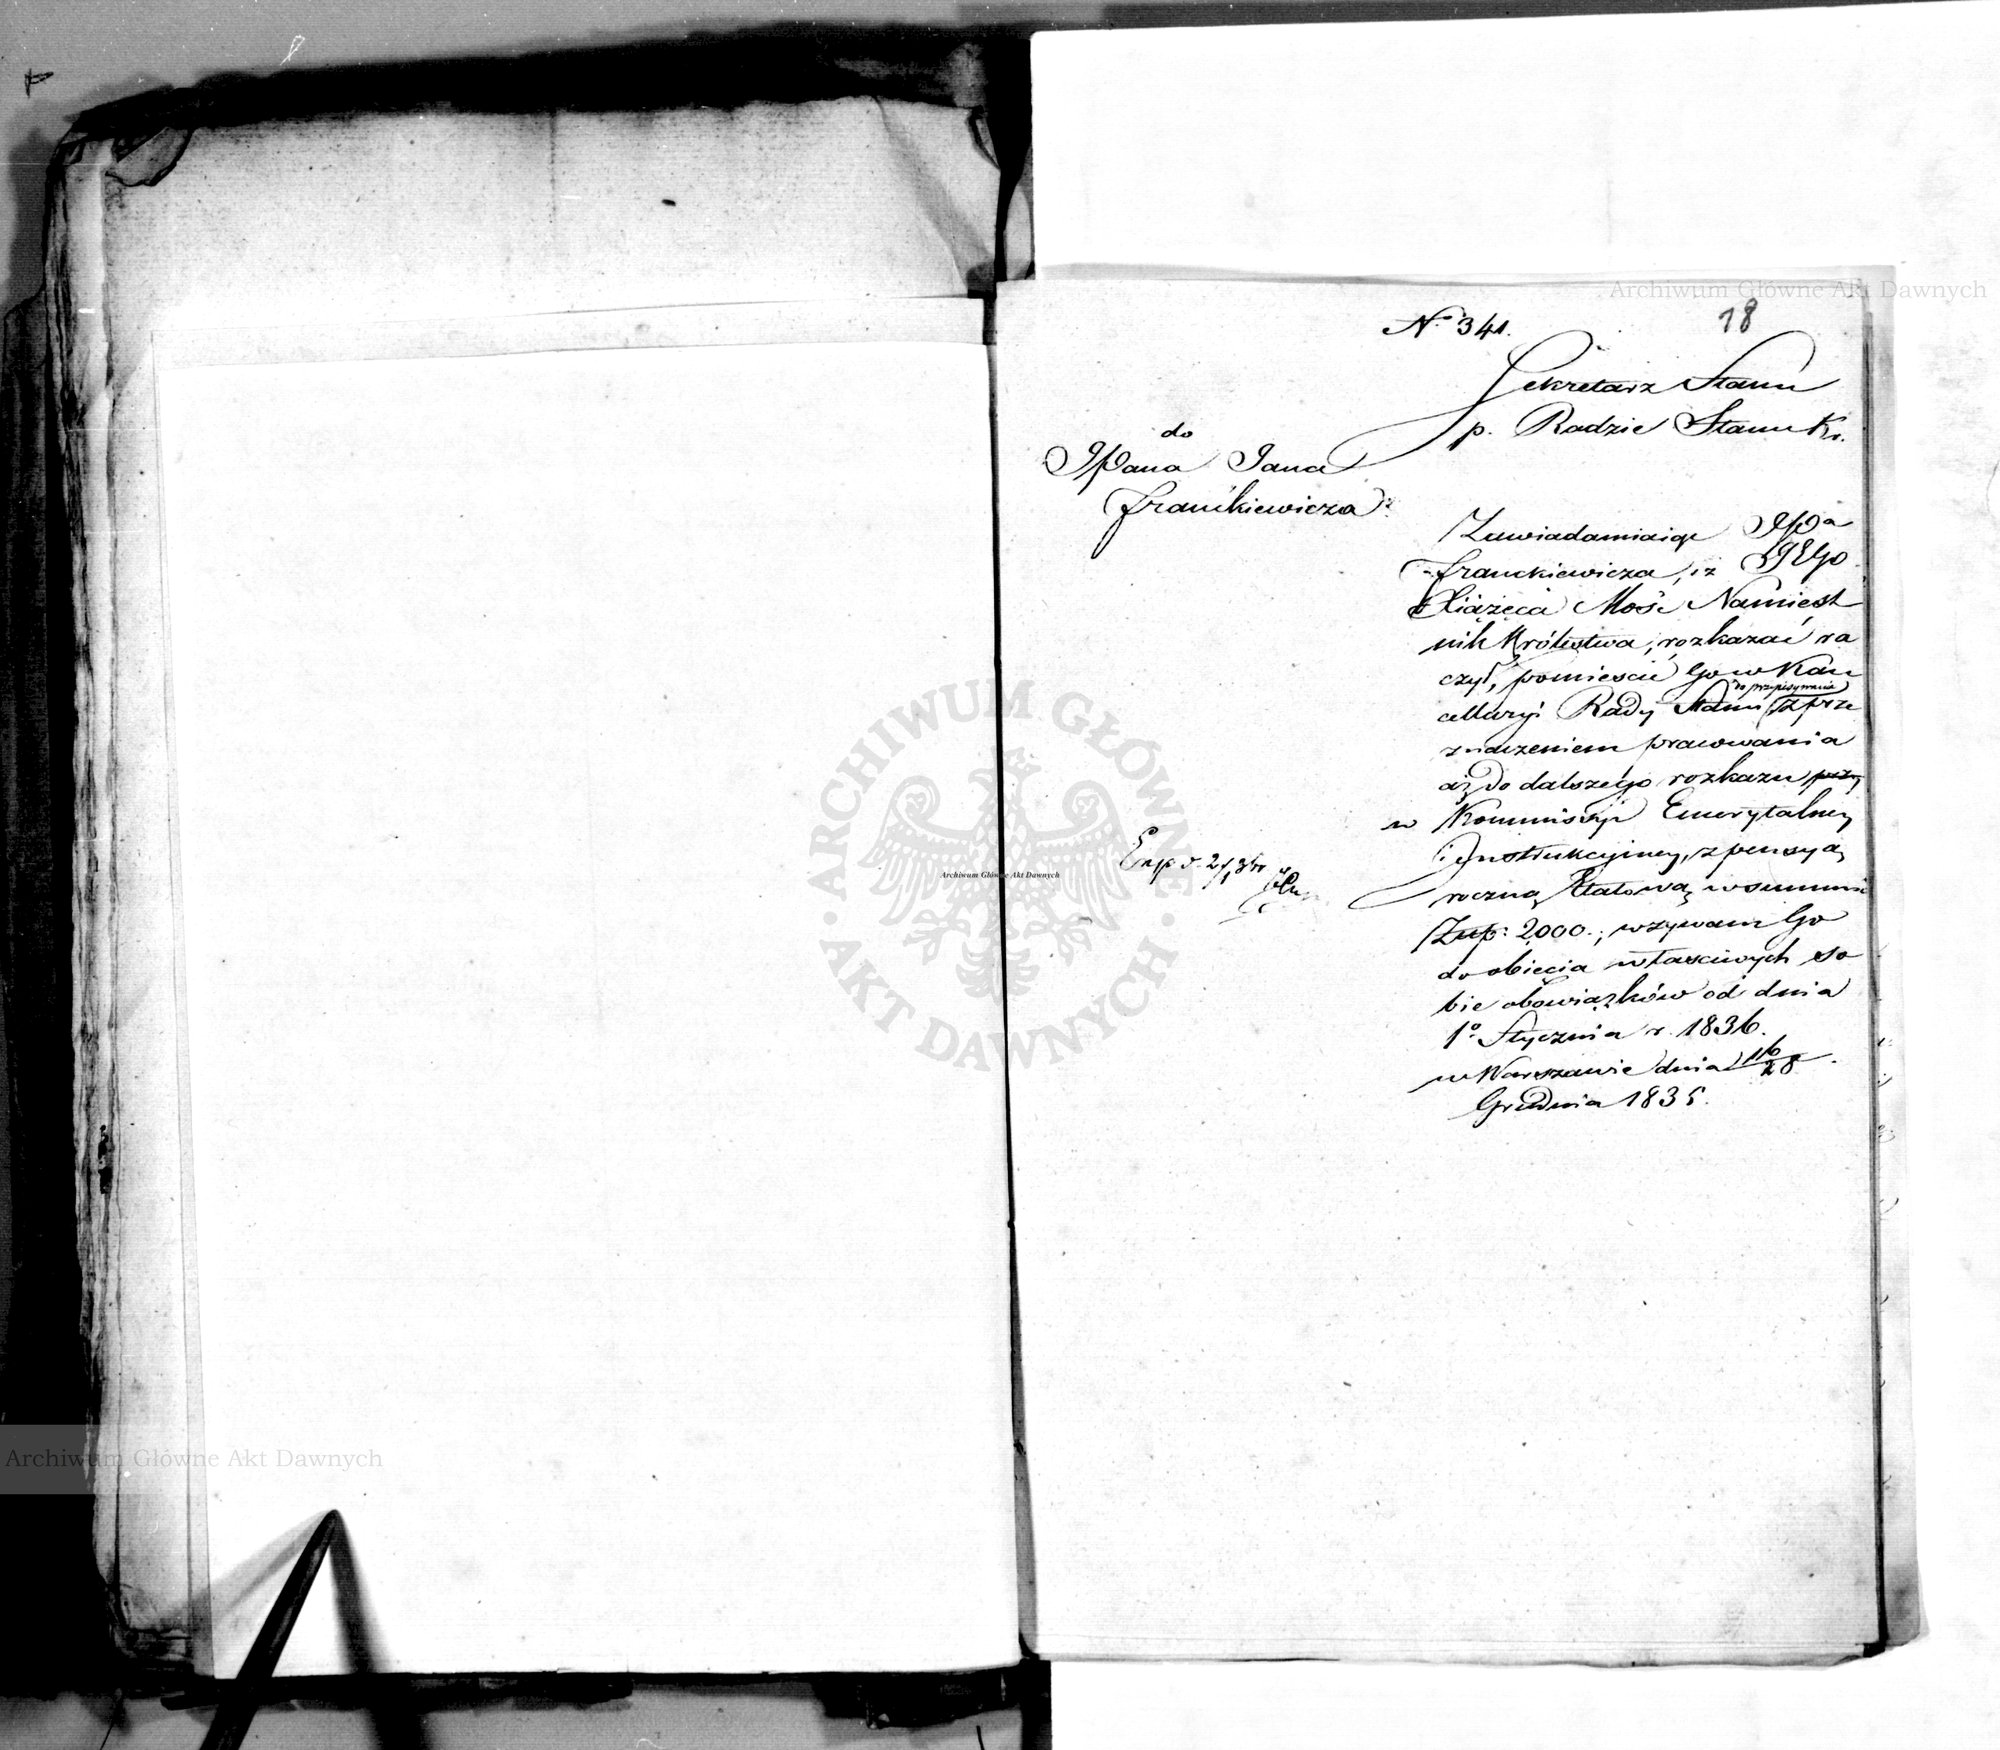 Archiwum Główne Akt Dawnych
N.o 341.
18
Sekretarz Stanu
p. Radzie Stanu Kr.
do
JPana Jana
Franckiewicza
Zawiadamiaiąc JPa
Franckiewicza, iż JEgo
Xiążęca Mość Namiest
nik Królestwa, rozkazać ra
czył, pomieścić Go w Kan
do przepisywania
cellaryi Rady Stanu z prze
znaczeniem pracowania
aż do dalszego rozkazu przy
w Kommissyi Emerytalney
Instrukcyiney, z pensyą
roczną Etatową w summie
Złtp: 2000.; wzywam Go
do obięcia właściwych so
bie obowiązków od dnia
1o Stycznia r. 1836.
w Warszawie dnia 16/28
Grudnia 1835.
Exp d. 2/1 36 r
ARCHIWUM GŁÓWNE
AKT DAWNYCH
Archiwum Główne Akt Dawnych
Archiwum Główne Akt Dawnych